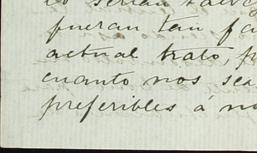 lo serian talv
fueran tan fa
actual trato, p
cuanto nos sea
preferibles a no